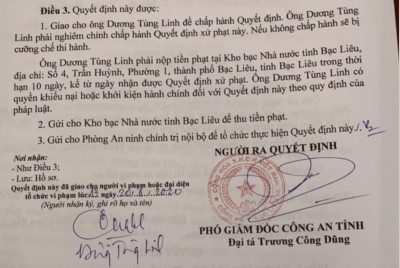 Điều 3. Quyết định này được:
1. Giao cho ông Dương Tùng Linh để chấp hành Quyết định. Ông Dương Tùng
Linh phải nghiêm chỉnh chấp hành Quyết định xử phạt này. Nếu không chấp hành sẽ bị
cưỡng chế thi hành.
Ông Dương Tùng Linh phải nộp tiền phạt tại Kho bạc Nhà nước tỉnh Bạc Liêu,
địa chỉ: Số 4, Trần Huỳnh, Phường 1, thành phố Bạc Liêu, tỉnh Bạc Liêu trong thời
hạn 10 ngày, kể từ ngày nhận được Quyết định xử phạt. Ông Dương Tùng Linh có
quyền khiếu nại hoặc khởi kiện hành chính đối với Quyết định này theo quy định của
pháp luật.
2. Gửi cho Kho bạc Nhà nước tỉnh Bạc Liêu để thu tiền phạt.
3. Gửi cho Phòng An ninh chính trị nội bộ để tổ chức thực hiện Quyết định này./.
Nơi nhận:
- Như Điều 3;
- Lưu: Hồ sơ.
Quyết định này đã giao cho người vi phạm hoặc đại diện
tổ chức vi phạm lúc ngày
(Người nhận ký, ghi rõ họ và tên)
NGƯỜI RA QUYẾT ĐỊNH
PHÓ GIÁM ĐỐC CÔNG AN TỈNH
Đại tá Trương Công Dũng